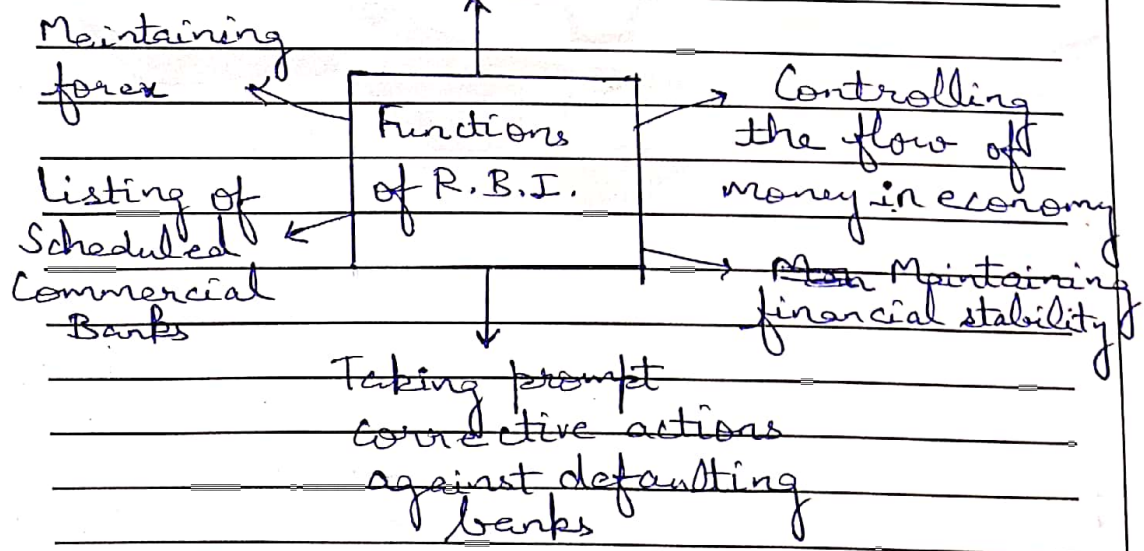 Maintaining
forex
Functions
of R.B.I.
Controlling
the flow of
money in economy
Listing of
Scheduled
Commercial
Banks
Maintaining
financial stability
Taking prompt
corrective actions
against defaulting
banks